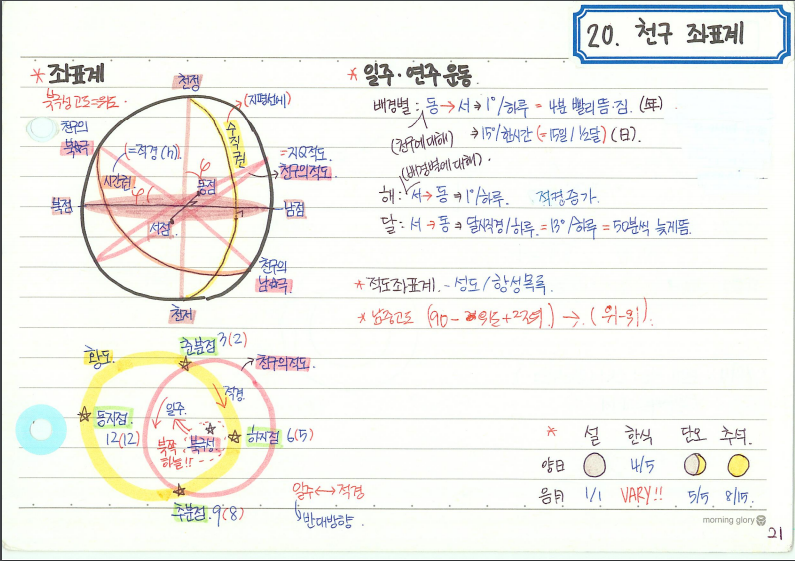 20. 천구 좌표계
* 좌표계
북극성고도=위도.
천정
(지평선세)
천구의
북극
(=적경(h))
수직권
=지Q적도
천구의적도.
시간권.
φ
φ
동점
북점
서점
남점
천구의
남극
천저
* 일주·연주 운동.
배경별 : 동 → 서 ⇒ 1°/하루 = 4분 빨리 뜸·짐. (年)
(천구에 대해)
⇒ 15°/한시간 (=15일/½달) (日).
(배경별에 대해).
해 : 서 → 동 ⇒ 1°/하루. 적경증가.
달 : 서 → 동 ⇒ 달시직경/하루. = 13°/하루 = 50분씩 늦게뜸.
* 적도좌표계. - 성도/항성목록.
* 남중고도 (90-위도+적위) → (위-위).
황도.
춘분점 3(2)
천구의적도
적경.
동지점.
12(12)
일주.
북쪽
하늘!!
북극성
하지점 6(5)
추분점. 9(8)
일주 ↔ 적경
반대방향.
* 설 한식 단오 추석.
양력 4/5
음력 1/1 VARY!! 5/5 8/15.
morning glory
21